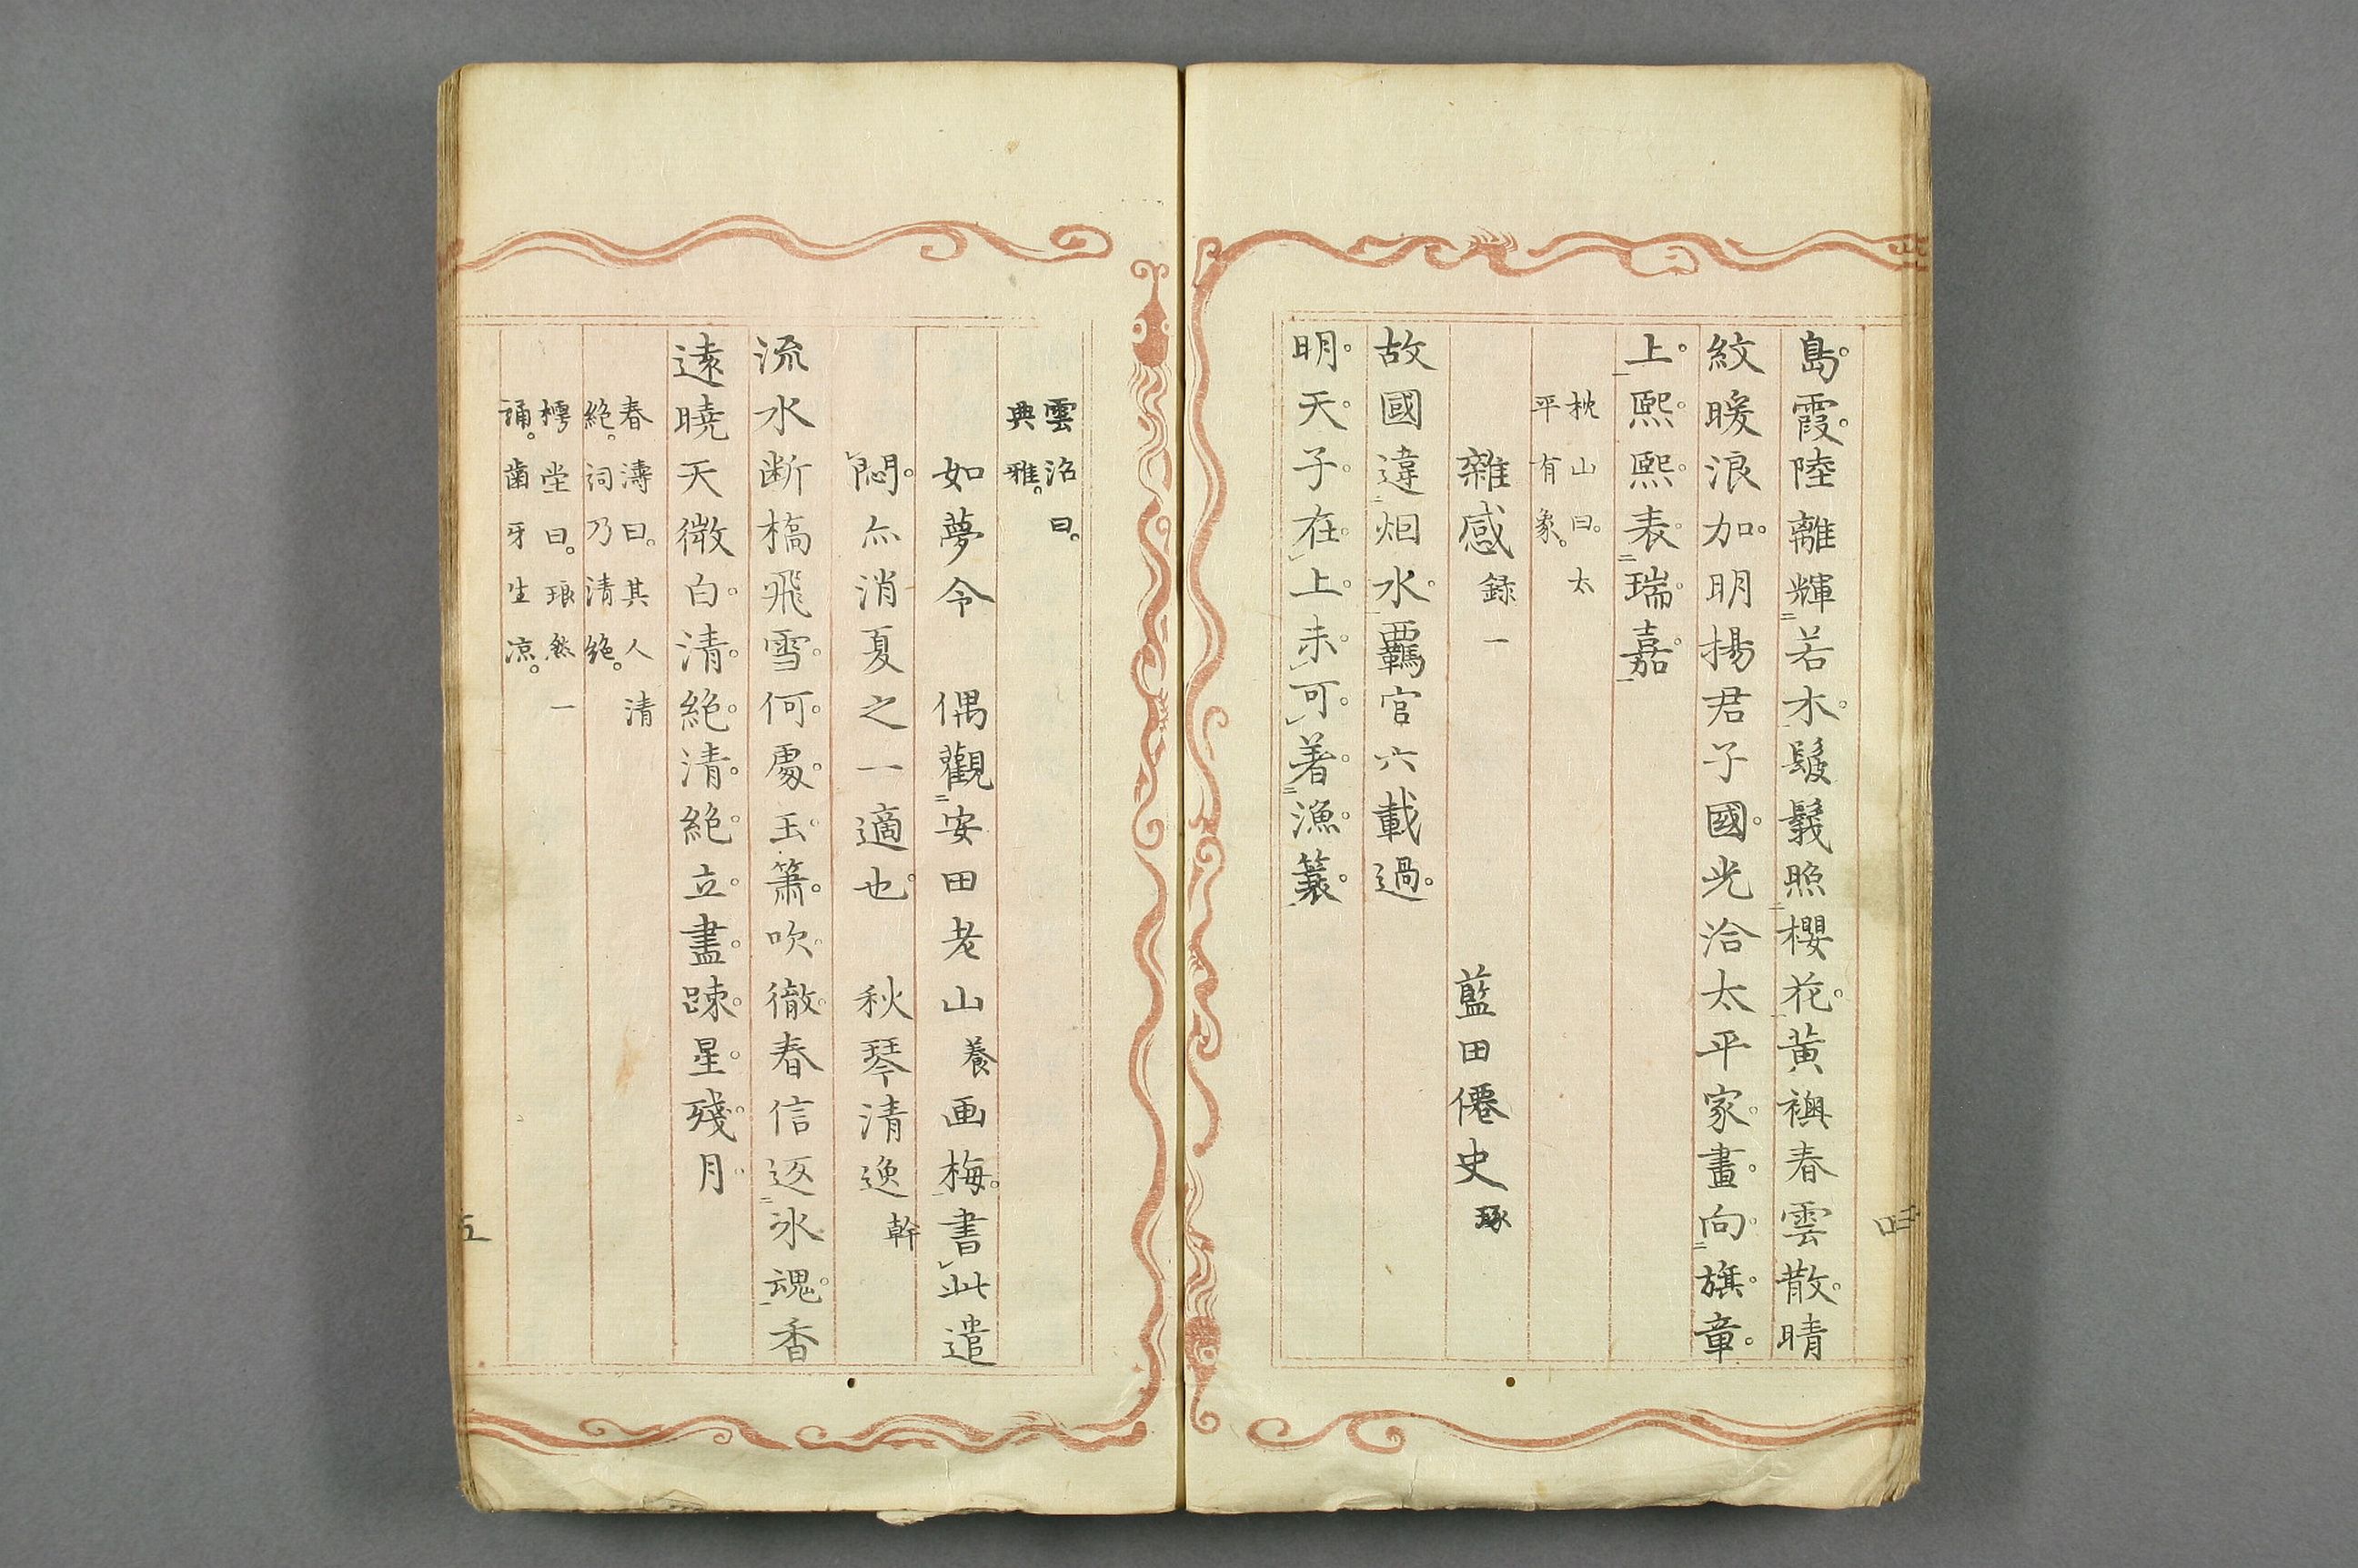 島霞。陸離輝若木。鬖鬖照櫻花。黃襖春雲散。晴
紋暖浪加。明揚君子國。光洽太平家。畫向旗章
上。熙熙表瑞嘉
枕山曰。太
平有象。
雜感 録一 藍田僊史 琢
故國違烟水。羈官六載過。
明天子在上。未可著漁簑。
四
雲沼曰。
典雅。
如夢令 偶觀安田老山 養 画梅。書此遣
悶。亦消夏之一適也。 秋琴清逸 幹
流水断槁飛雪。何處玉簫吹徹。春信返氷魂。香
遠曉天微白。清絶。清絶。立盡踈星殘月。
春濤曰。其人清
絶。詞乃清絶。
樗堂曰。琅然一
誦。歯牙生凉。
五